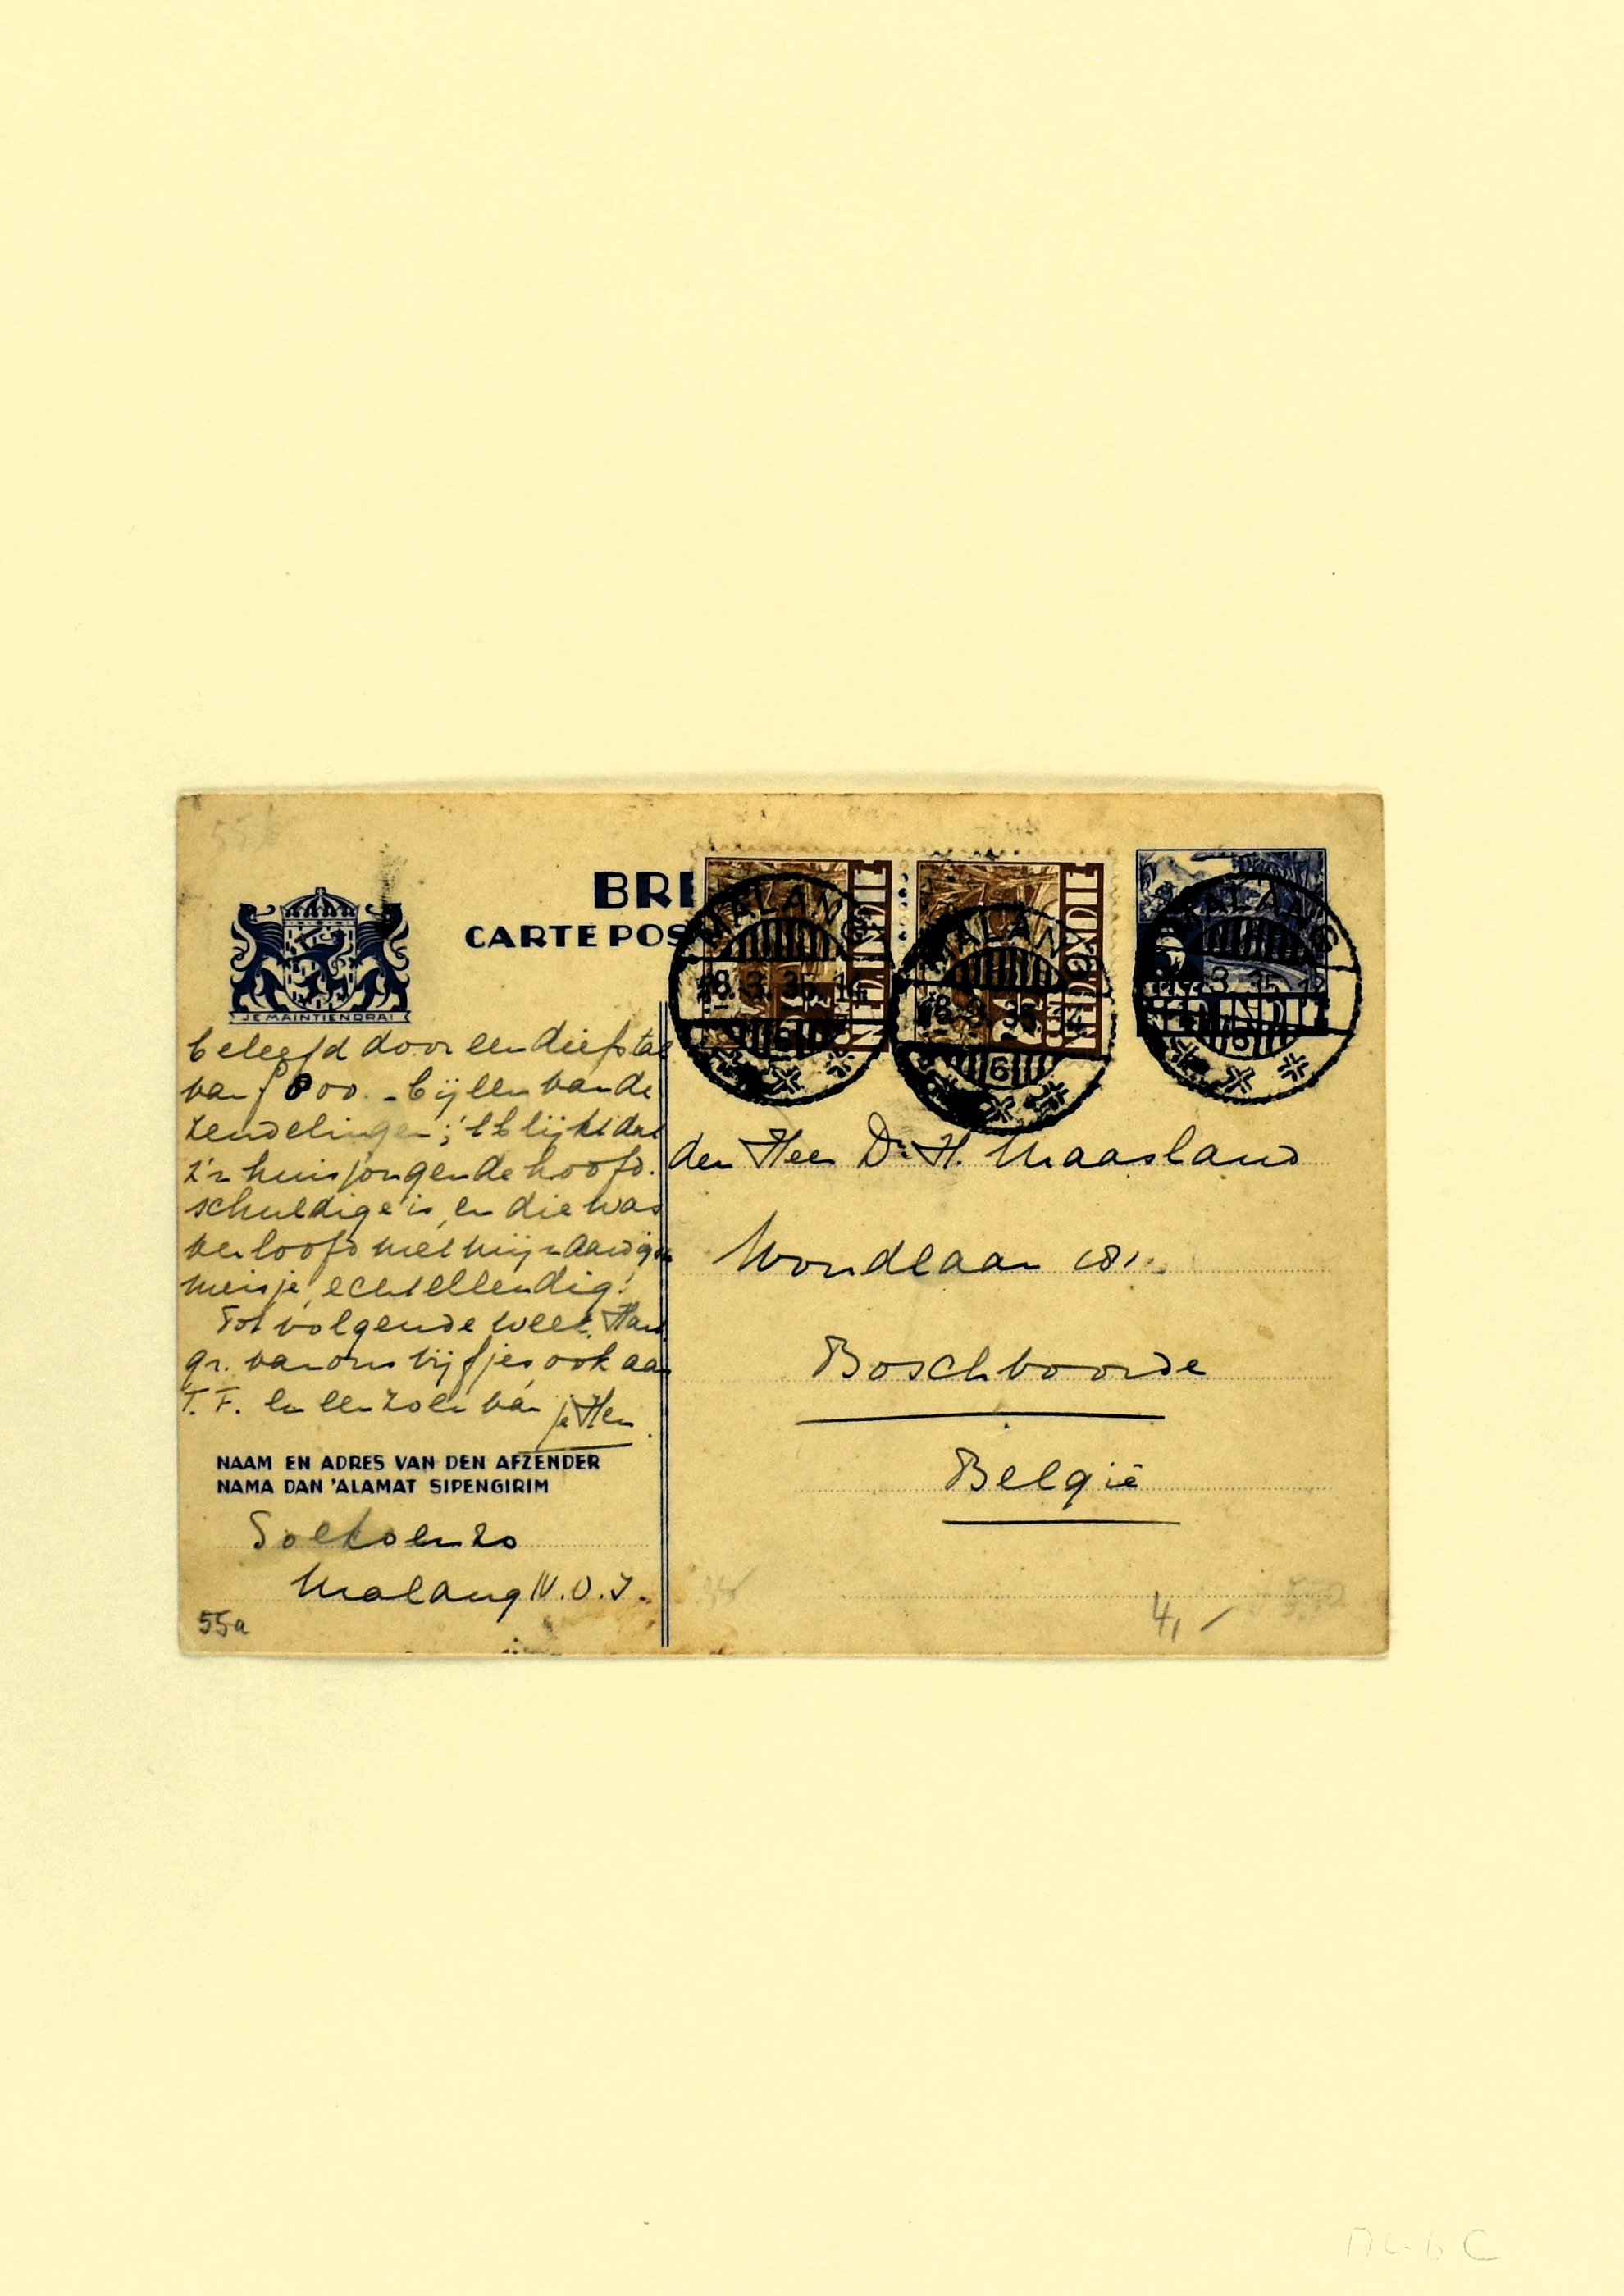 BRI
CARTE POS
JE MAINTIENDRAI
NED.INDIË
NED.INDIË
NED.INDIË
MALANG
18.3.35.14
6
MALANG
18.3.35.14
6
MALANG
3.35.14
6
beleefd door een diefstal
van f 800.- bij een van de
zendelingen; 't blijkt dat
z'n huisjongen de hoofd-
schuldige is, en die was
verloofd met mijn aardige
meisje, echt ellendig!
Tot volgende week. Har
gr. van ons vijfjes, ook aan
T. F. en een zoen van je Hen.
NAAM EN ADRES VAN DEN AFZENDER
NAMA DAN 'ALAMAT SIPENGIRIM
Soekoenzo
Malang N.O.I.
55a
den Heer Dr. H. Maasland
Woudlaan 181.
Boschvoorde
België
4,-